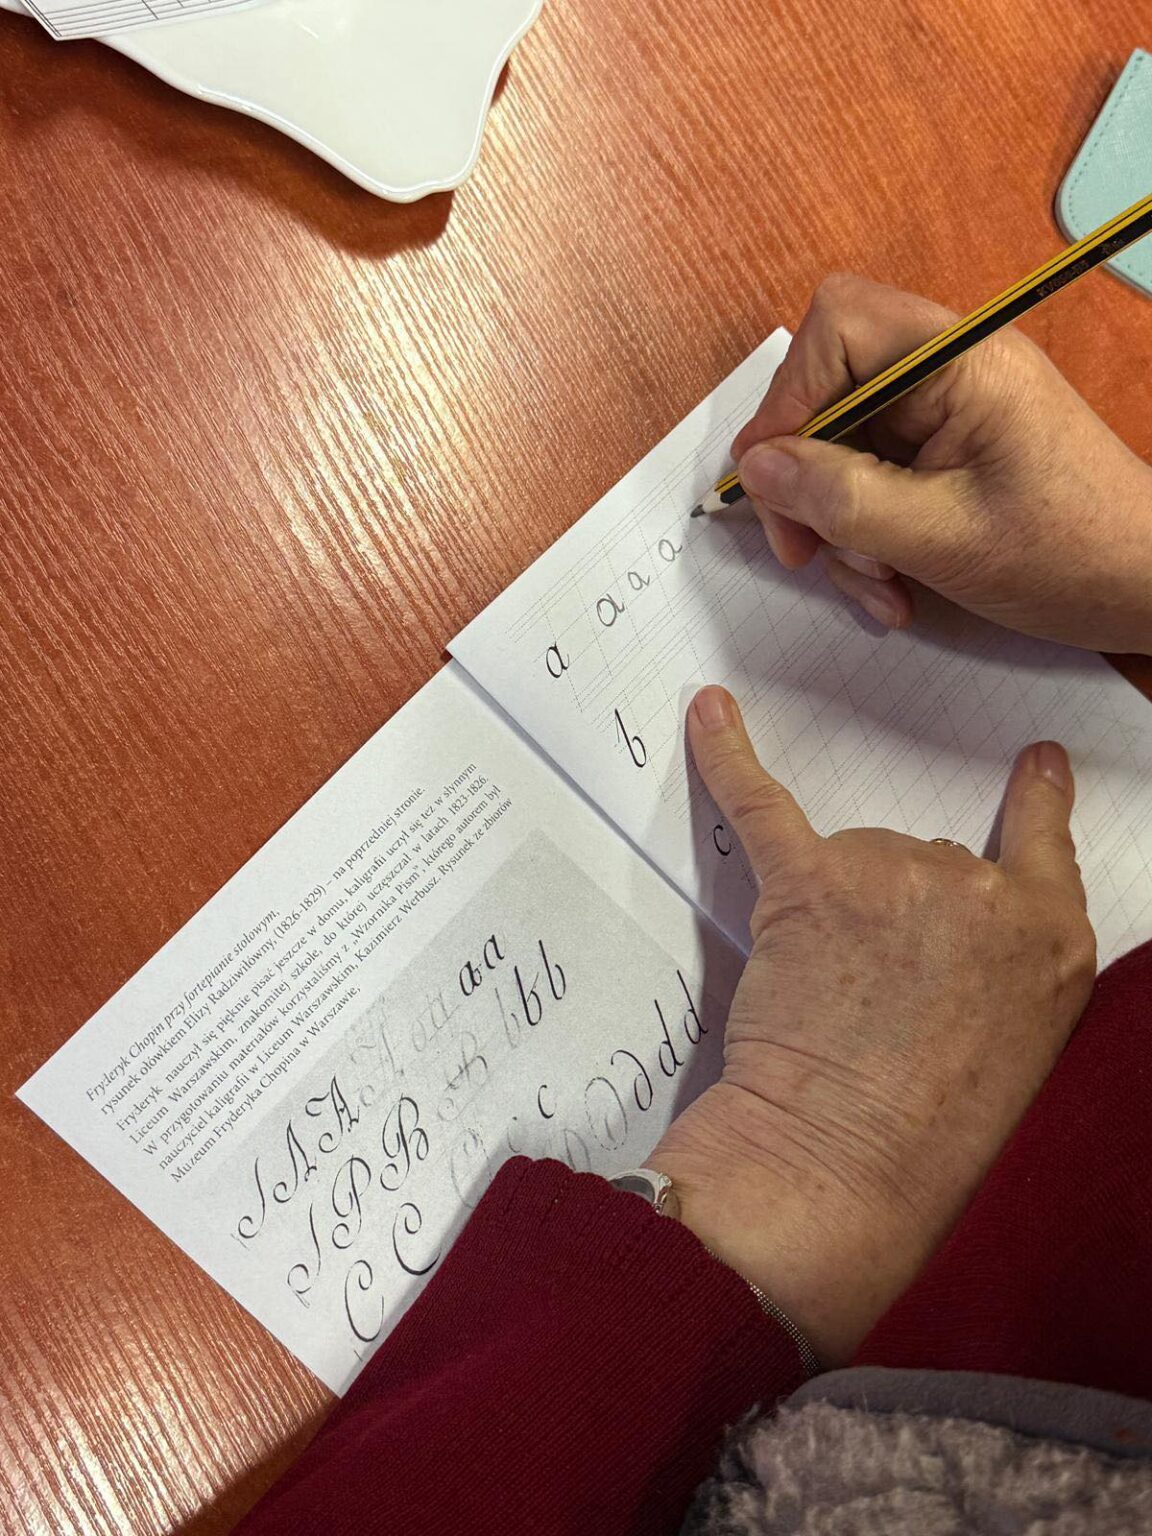 Fryderyk Chopin przy fortepianie stołowym,
rysunek ołówkiem Elizy Radziwiłówny, (1826-1829) – na poprzedniej stronie.
Fryderyk nauczył się pięknie pisać jeszcze w domu, kaligrafii uczył się też w słynnym
Liceum Warszawskim, znakomitej szkole, do której uczęszczał w latach 1823-1826.
W przygotowaniu materiałów korzystaliśmy z „Wzornika Pism”, którego autorem był
nauczyciel kaligrafii w Liceum Warszawskim, Kazimierz Werbusz. Rysunek ze zbiorów
Muzeum Fryderyka Chopina w Warszawie,
A A a a
P B b b b
C C c
d d d
a a a a
b
c